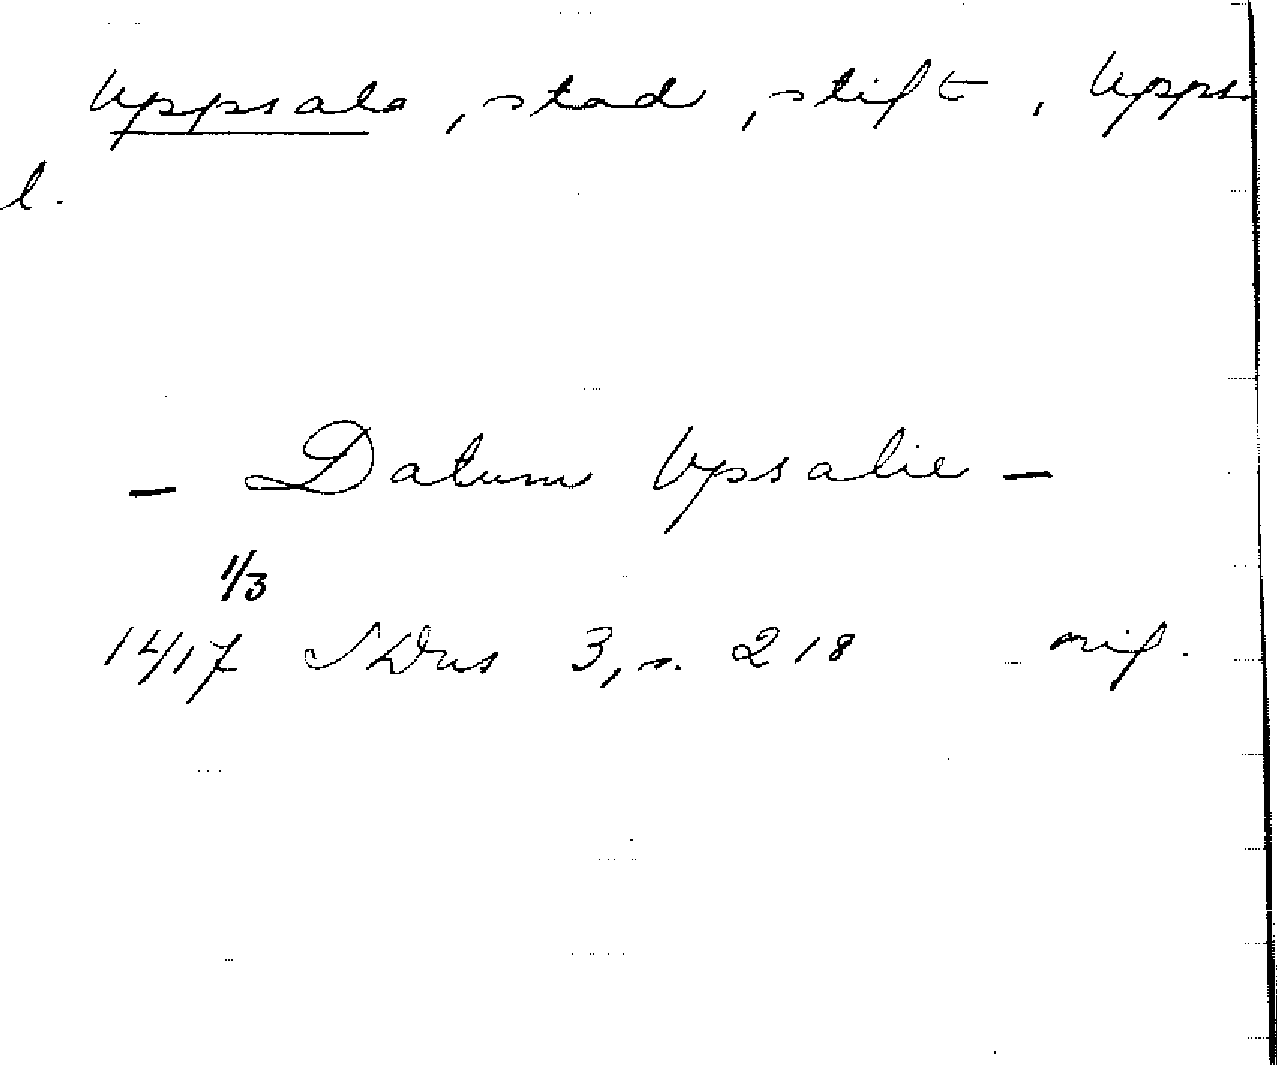 Uppsala, stad, stift, Upps
l.
- Datum Upsalie -
1/3
1417 SDns 3, s. 218 orig.